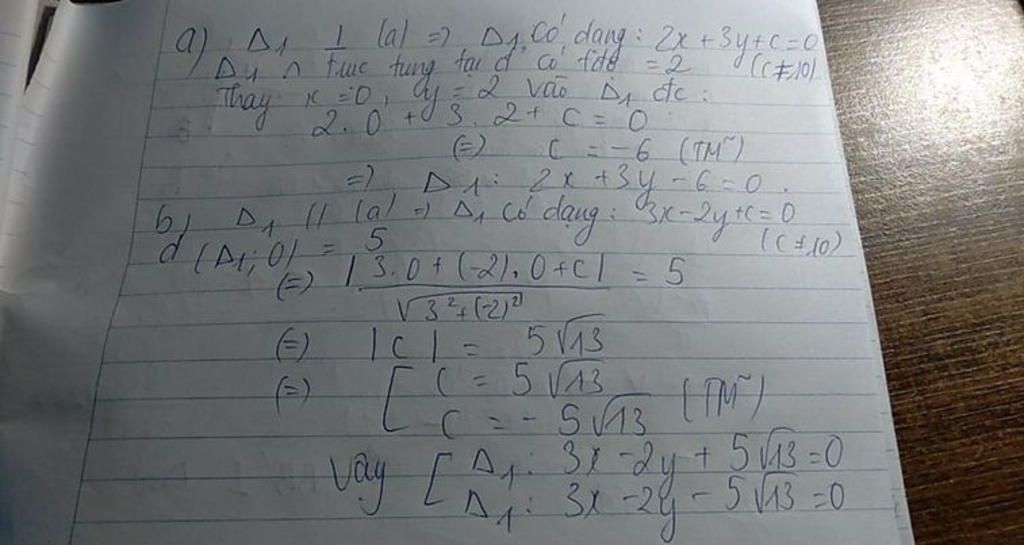 a) Δ1 ⊥ (a) => Δ1 có dạng: 2x + 3y + c = 0
Δ1 ∩ trục tung tại d có tđđ = 2 (c ≠ 10)
Thay x = 0, y = 2 vào Δ1 đc:
2.0 + 3.2 + c = 0
(=) c = -6 (TM~)
=> Δ1: 2x + 3y - 6 = 0.
b) Δ1 // (a) => Δ1 có dạng: 3x - 2y + c = 0
d(Δ1; O) = 5 (c ≠ 10)
(=) |3.0 + (-2).0 + c| / √(3² + (-2)²) = 5
(=) |c| = 5√13
(=) [ c = 5√13
c = -5√13 (TM~)
Vậy [ Δ1: 3x - 2y + 5√13 = 0
Δ1: 3x - 2y - 5√13 = 0